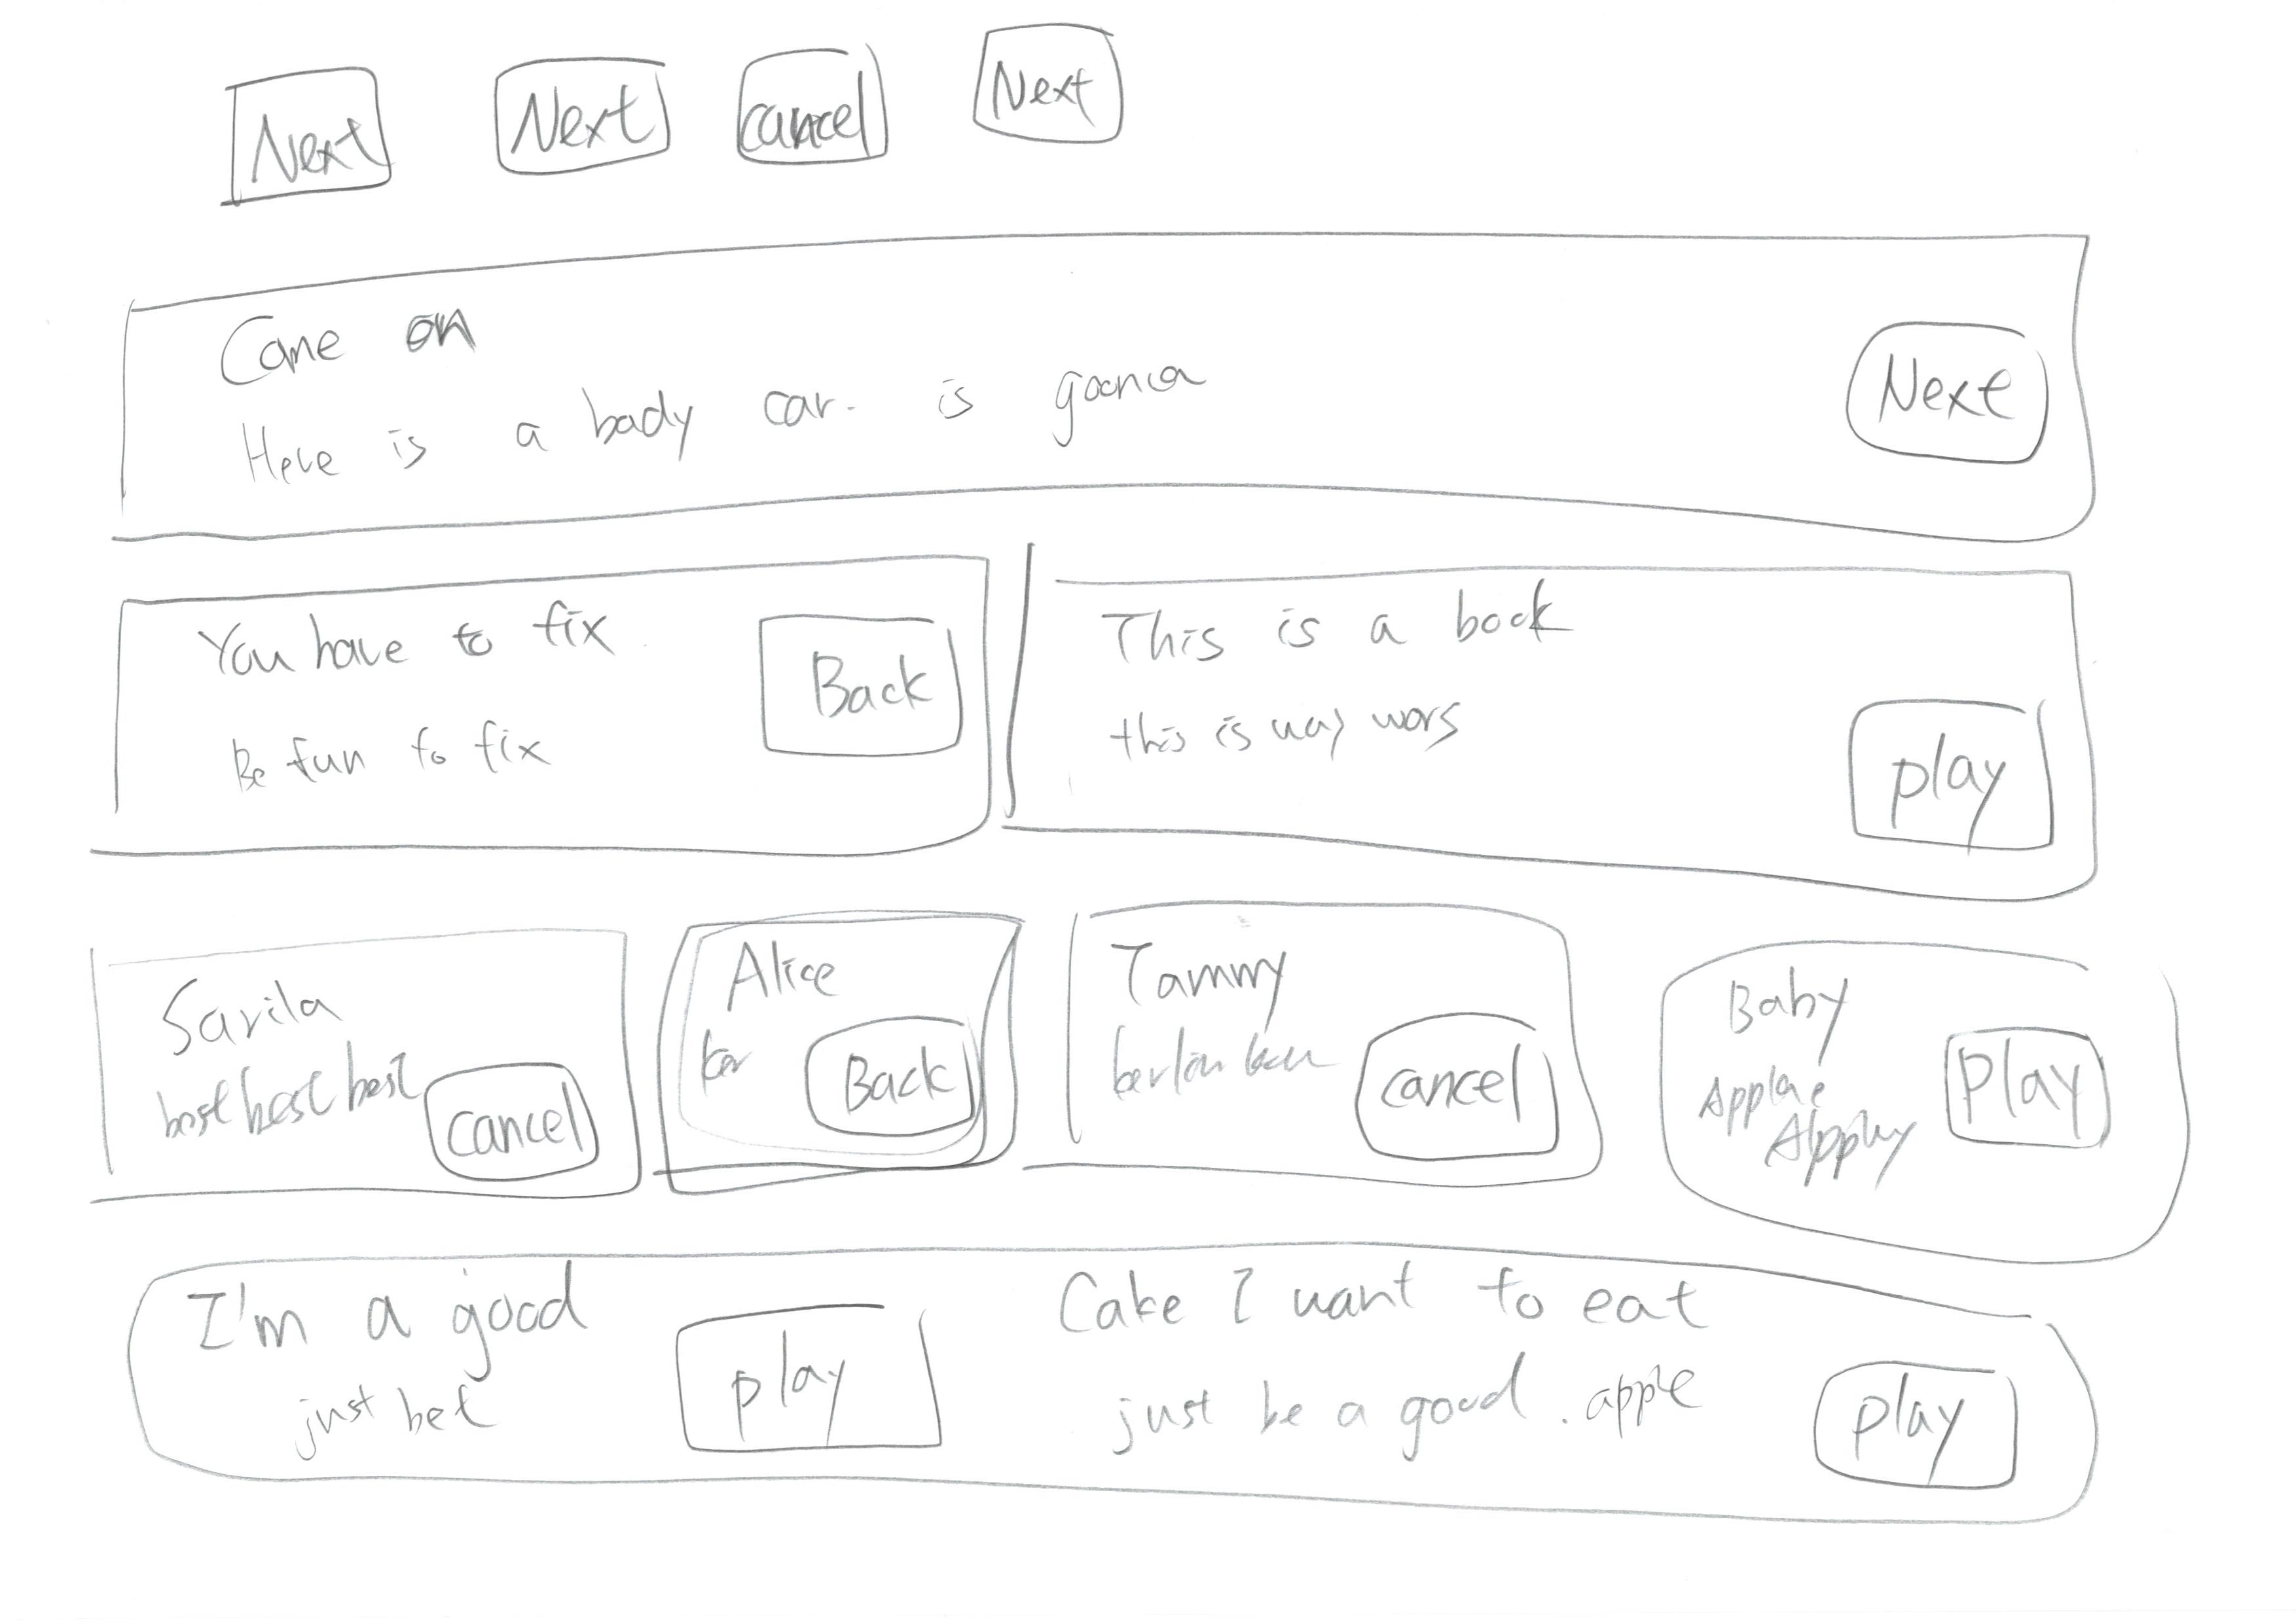 Next Next cancel Next
Come on
Here is a bady car. is goona
Next
You have to fix.
Be fun to fix
Back
This is a book
this is way wors
play
Savila
best best best
cancel
Alice
Back
Tammy
cancel
Baby
Play
I'm a good
just bet
play
Cake I want to eat
just be a good. apple
play